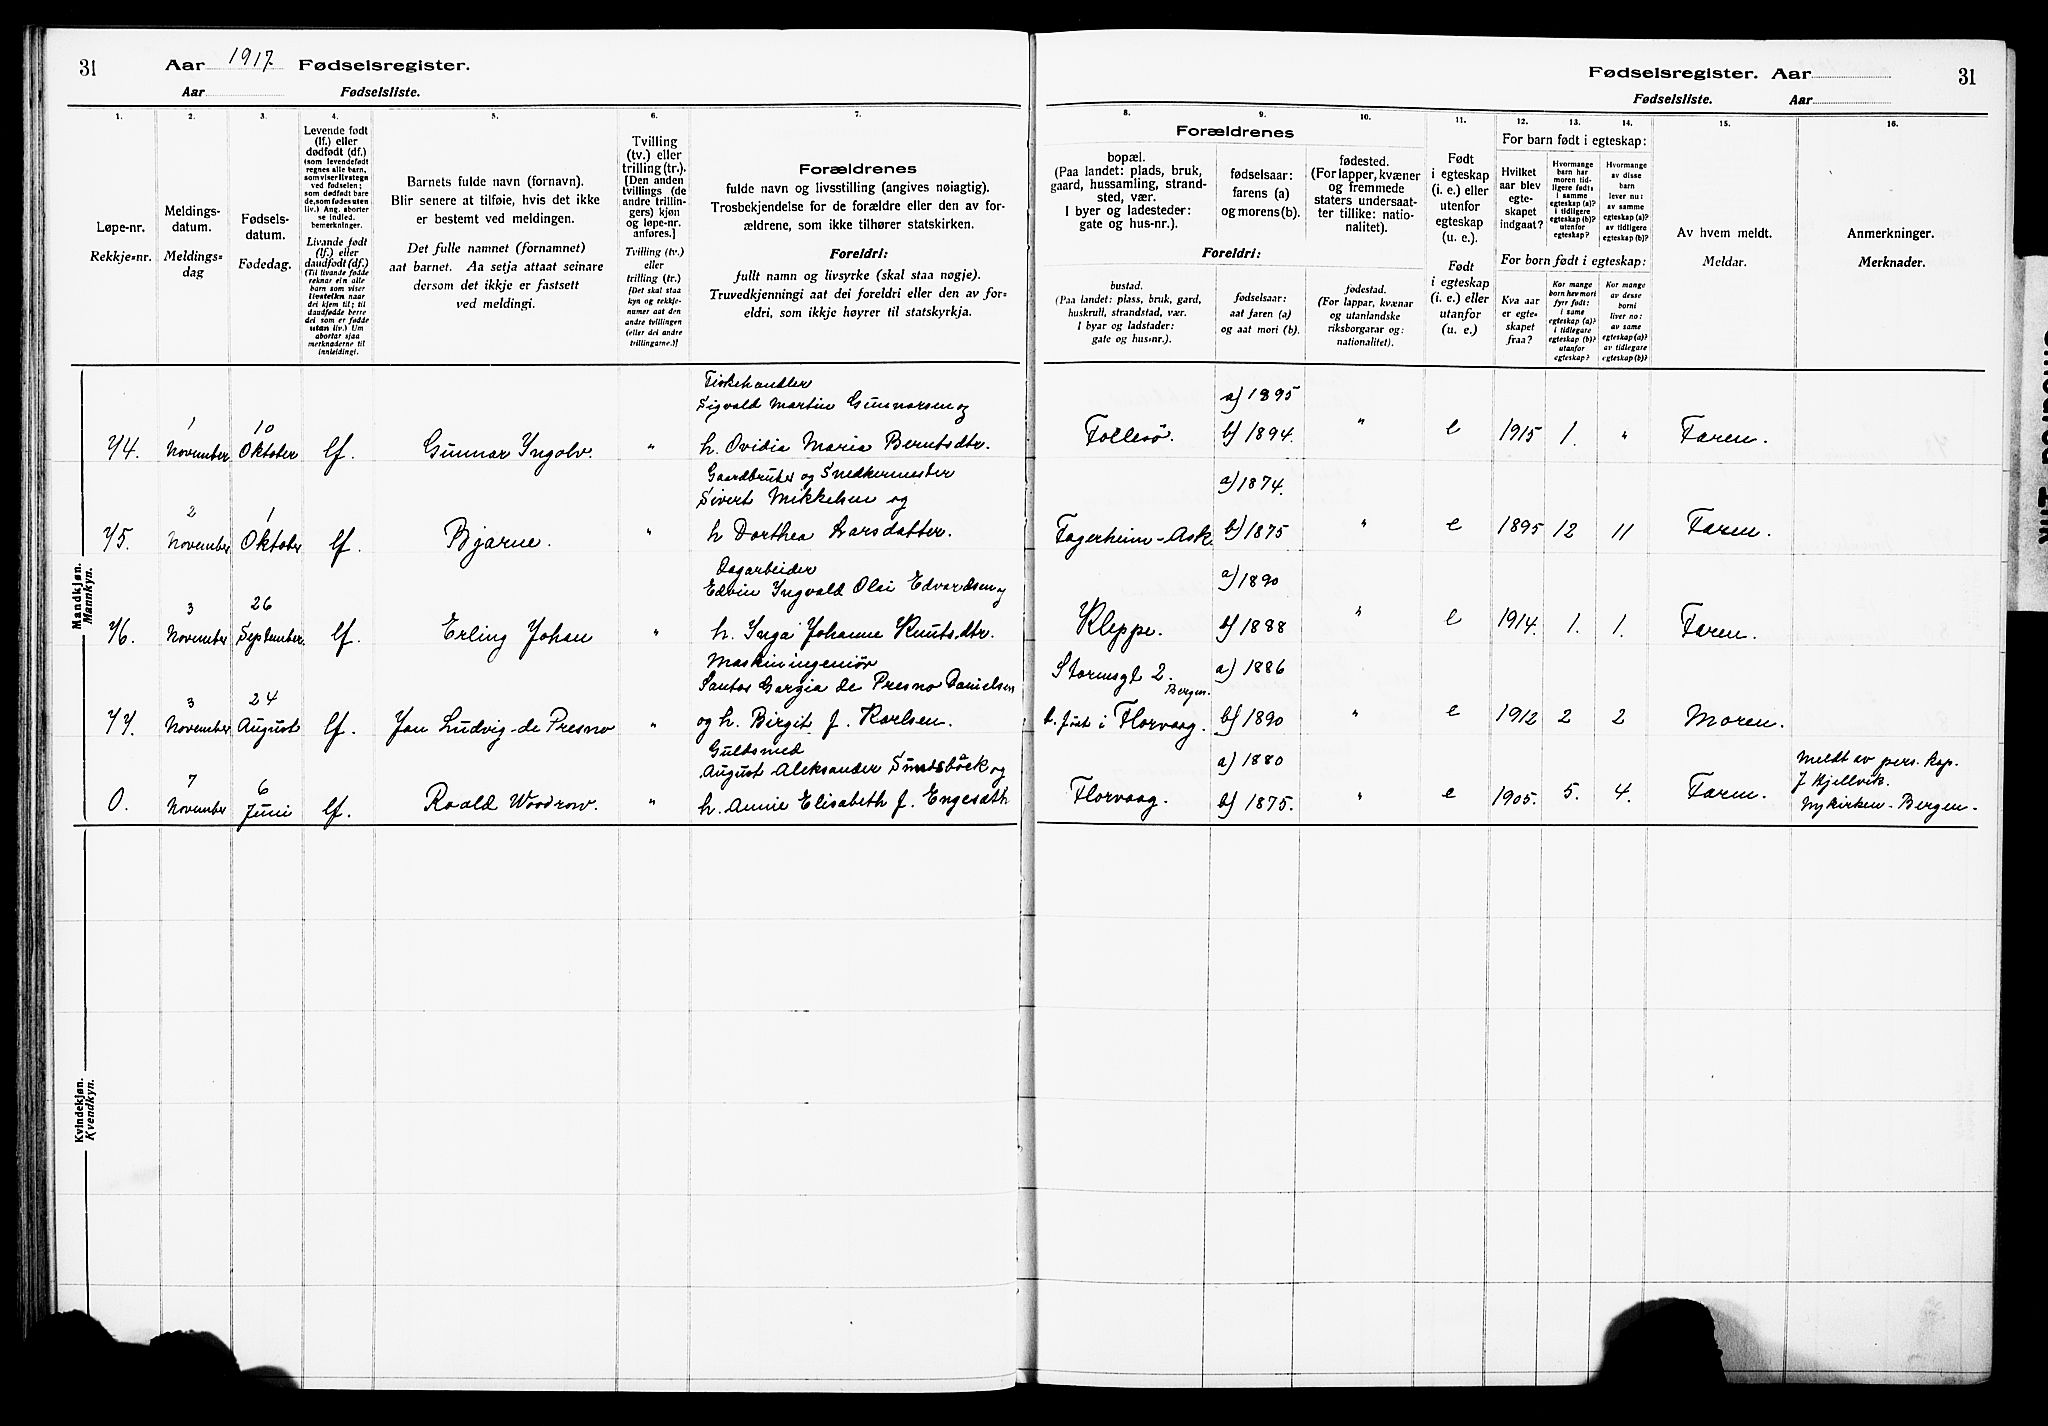 31 Aar 1917. Fødselsregister.
Aar Fødselsliste.
Fødselsregister. Aar 31
Fødselsliste. Aar
1.
Løpe-nr.
Rekkje=nr.
2.
Meldings-
datum.
Meldings-
dag
3.
Fødsels-
datum.
Fødedag.
4.
Levende født
(lf.) eller
dødfødt (df.)
(som levendefødt
regnes alle barn,
som viser livstegn
ved fødselen;
som dødfødt bare
de, som fødes uten
liv.) Ang. aborter
se indled.
bemerkninger.
Livande født
(lf.) eller
daudfødt (df.)
(Til livande fødde
reknar ein alle
barn som viser
livsteikn naar
dei kjem til; til
daudfødde berre
dei som er fødde
utan liv.) Um
abortar sjaa
merknaderne til
innleidingi.
5.
Barnets fulde navn (fornavn).
Blir senere at tilføie, hvis det ikke
er bestemt ved meldingen.
Det fulle namnet (fornamnet)
aat barnet. Aa setja attaat seinare
dersom det ikkje er fastsett
ved meldingi.
6.
Tvilling
(tv.) eller
trilling (tr.).
[Den anden
tvillings (de
andre trillin-
gers) kjøn
og løpe-nr.
anføres.]
Tvilling (tv.)
eller
trilling (tr.)
[Det skal staa
kyn og rekkje-
numer aat den
andre tvillingen
(eller dei andre
trillingarne.)]
7.
Forældrenes
fulde navn og livsstilling (angives nøiagtig).
Trosbekjendelse for de forældre eller den av for-
ældrene, som ikke tilhører statskirken.
Foreldri:
fullt namn og livsyrke (skal staa nøgje).
Truvedkjenningi aat dei foreldri eller den av for-
eldri, som ikkje høyrer til statskyrkja.
8.
Forældrenes
bopæl.
(Paa landet: plads, bruk,
gaard, hussamling, strand-
sted, vær.
I byer og ladesteder:
gate og hus-nr.).
Foreldri:
bustad.
(Paa landet: plass, bruk, gard,
huskrull, strandstad, vær.
I byar og ladstader:
gate og hus=nr.).
9.
fødselsaar:
farens (a)
og morens (b).
fødselsaar:
aat faren (a)
og aat mori (b).
10.
fødested.
(For lapper, kvæner
og fremmede
staters undersaat-
ter tillike: natio-
nalitet).
fødestad.
(For lappar, kvænar
og utanlandske
riksborgarar og:
nationalitet).
11.
Født
i egteskap
(i. e.) eller
utenfor
egteskap
(u. e.).
Født
i egteskap
(i. e.) eller
utanfor
(u. e.)
For barn født i egteskap:
For born født i egteskap:
12.
Hvilket
aar blev
egte-
skapet
indgaat?
Kva aar
er egte-
skapet
fraa?
13.
Hvormange
barn har
moren tid-
ligere født:
i samme
egteskap (a)?
i tidligere
egteskap (b)?
utenfor
egteskap?
Kor mange
born hev mori
fyrr født:
i same
egteskap (a)?
i tidlegare
egteskap (b)?
utanfor
egteskap?
14.
Hvormange
av disse
barn
lever nu:
av samme
egteskap (a)?
av tidligere
egteskap (b)?
Kor mange
av desse
borni
liver no:
av same
egteskap (a)?
av tidlegare
egteskap (b)?
15.
Av hvem meldt.
Meldar.
16.
Anmerkninger.
Merknader.
Mandkjøn.
Mannkyn.
Fiskehandler
Sigvald Martin Gunnarsen og
a) 1895
1 10
74. November Oktober lf. Gunnar Ingolv. " h. Ovidia Maria Berntsdtr. Follesø. b) 1894. " e 1915 1. " Faren.
Gaardbruker og Snedkermester
Sivert Mikkelsen og
a) 1874.
2 1
75. November Oktober lf. Bjarne. " h Dorthea Larsdatter. Fagerheim-Ask. b) 1875 " e 1895 12 11 Faren.
Dagarbeider
Edvin Ingvald Olai Edvardsen og
a) 1890
3 26
76. November September. lf. Erling Johan " h. Inga Johanne Knutsdtr. Kleppe. b) 1888 " e 1914. 1. 1. Faren.
Maskiningeniør
Santos Gargia de Presno Danielsen
Stormsgt 2. Bergen. a) 1886
3 24
77. November August lf. Jan Ludvig de Presno " og h. Birgit f. Karlsen. b. født i Florvaag. b) 1890 " e 1912 2 2 Moren.
Guldsmed
August Aleksander Sundsbäck og
a) 1880
7 6
0. November Juni lf. Roald Woodrow. " h. Annie Elisabeth f. Engesæth Florvaag. b) 1875. " e 1905. 5. 4. Faren.
Meldt av pers. kap.
J Kjellvik.
Nykirken - Bergen -
Kvindekjøn.
Kvendkyn.